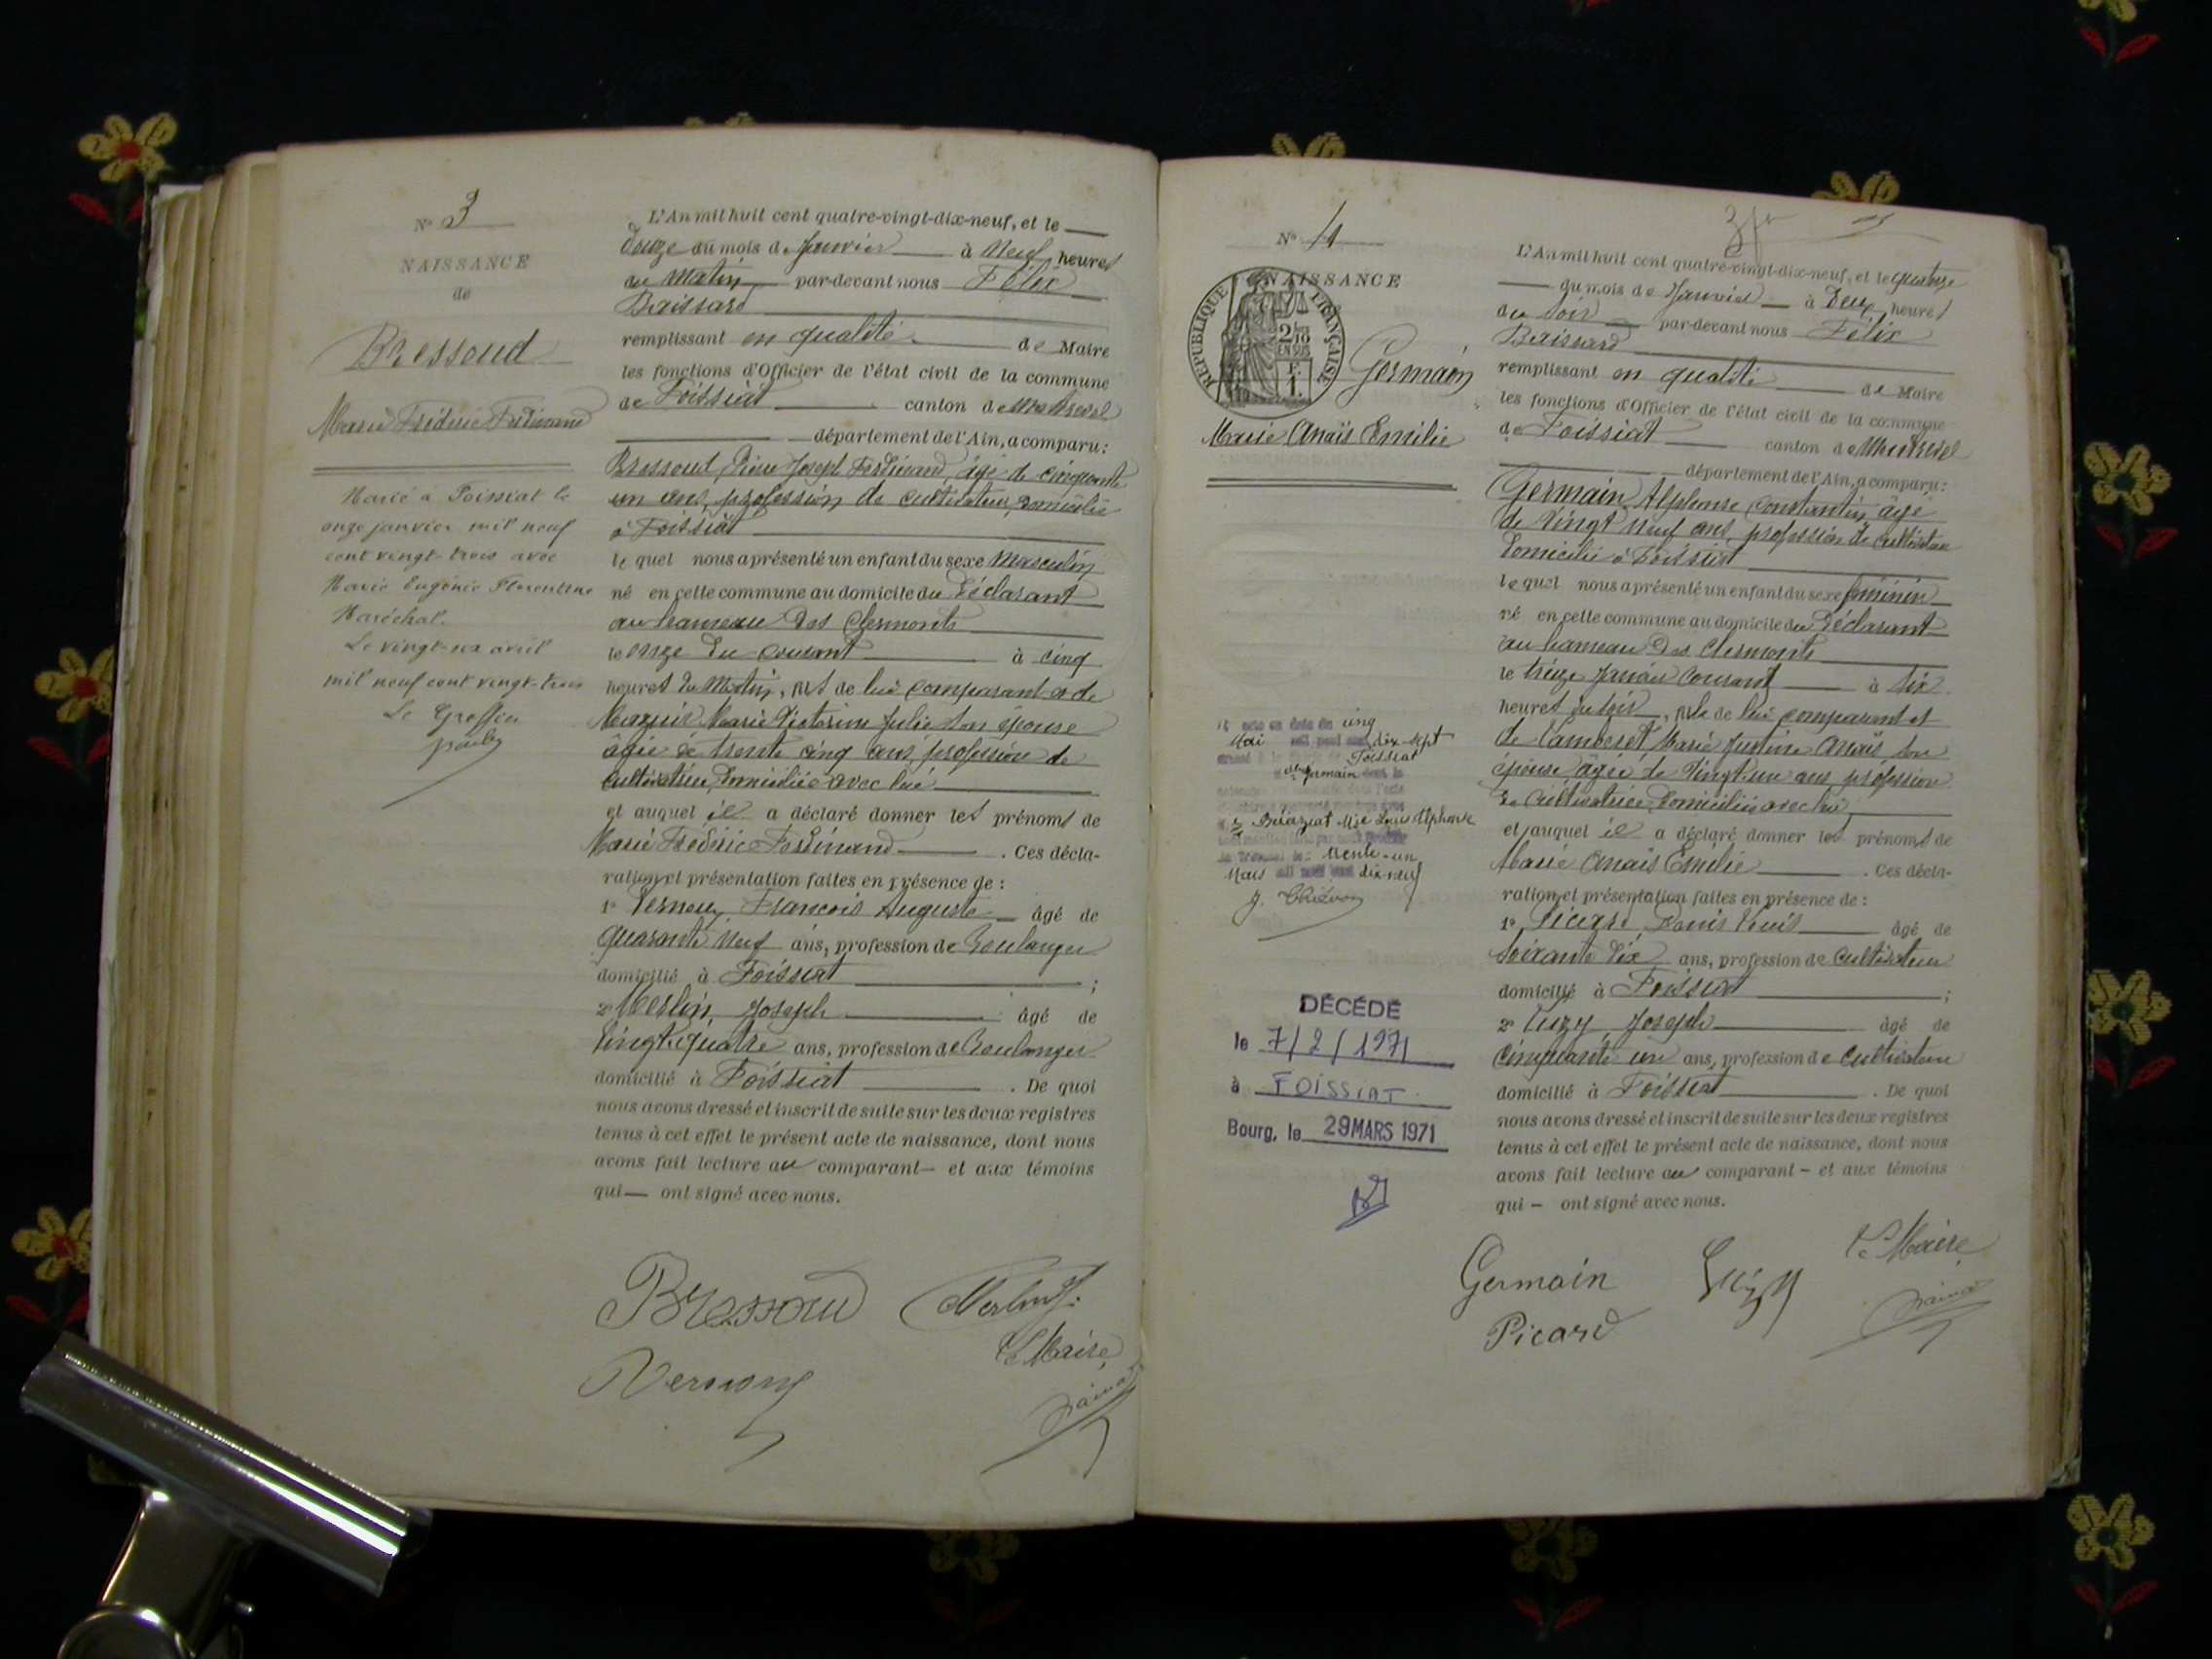 N° 3
NAISSANCE
de
Bressoud
Marie Frédéric Ferdinand
Marié à Foissiat le
onze janvier mil neuf
cent vingt-trois avec
Marie Eugénie Florentine
Maréchal.
Le vingt-six avril
mil neuf cent vingt-trois
Le Greffier
L'An mil huit cent quatre-vingt-dix-neuf, et le
Douze du mois de Janvier à Neuf heures
du Matin par-devant nous Félix
remplissant en qualité de Maire
les fonctions d'Officier de l'état civil de la commune
de Foissiat canton de Montrevel
département de l'Ain, a comparu :
Bressoud, Pierre Joseph Ferdinand, âgé de cinquante
un ans, profession de cultivateur, domicilié
à Foissiat
lequel nous a présenté un enfant du sexe Masculin
né en cette commune au domicile du Déclarant
au hameau des Clermonts
le onze du courant à cinq
heures du Matin, fils de lui comparant et de
Marie Victorine Julie son épouse
âgée de trente cinq ans, profession de
cultivatrice, domiciliée avec lui
et auquel il a déclaré donner les prénoms de
Marie Frédéric Ferdinand . Ces décla-
ration et présentation faites en présence de :
1° François Auguste âgé de
Quarante Neuf ans, profession de Boulanger
domicilié à Foissiat ;
2° Merlin, Joseph âgé de
Vingt-quatre ans, profession de Boulanger
domicilié à Foissiat . De quoi
nous avons dressé et inscrit de suite sur les deux registres
tenus à cet effet le présent acte de naissance, dont nous
avons fait lecture au comparant et aux témoins
qui ont signé avec nous.
Bressoud
Le Maire,
N° 4
NAISSANCE
RÉPUBLIQUE FRANÇAISE
2/10
EN SUS
F.
1.
Germain
Marie Anaïs Emilie
cinq
Mai dix-sept
Foissiat
Germain
Louis Alphonse
trente-un
Mars dix-neuf
DÉCÉDÉ
le 7/2/1971
à FOISSIAT
Bourg, le 29 MARS 1971
L'An mil huit cent quatre-vingt-dix-neuf, et le quatorze
du mois de Janvier à Deux heures
du soir par-devant nous Félix
remplissant en qualité de Maire
les fonctions d'Officier de l'état civil de la commune
de Foissiat canton de Montrevel
département de l'Ain, a comparu :
Germain, Alphonse Constantin, âgé
de Vingt Neuf ans, profession de cultivateur
domicilié à Foissiat
lequel nous a présenté un enfant du sexe féminin
né en cette commune au domicile du Déclarant
au hameau des Clermonts
le treize Janvier courant à six
heures du soir, fille de lui comparant et
de Marie Justine Anaïs son
épouse, âgée de Vingt-un ans, profession
de cultivatrice, domiciliée avec lui
et auquel il a déclaré donner les prénoms de
Marie Anaïs Emilie . Ces décla-
ration et présentation faites en présence de :
1° Picard, Denis âgé de
soixante dix ans, profession de cultivateur
domicilié à Foissiat ;
2° Joseph âgé de
Cinquante un ans, profession de cultivateur
domicilié à Foissiat . De quoi
nous avons dressé et inscrit de suite sur les deux registres
tenus à cet effet le présent acte de naissance, dont nous
avons fait lecture au comparant - et aux témoins
qui - ont signé avec nous.
Germain
Le Maire,
Picard